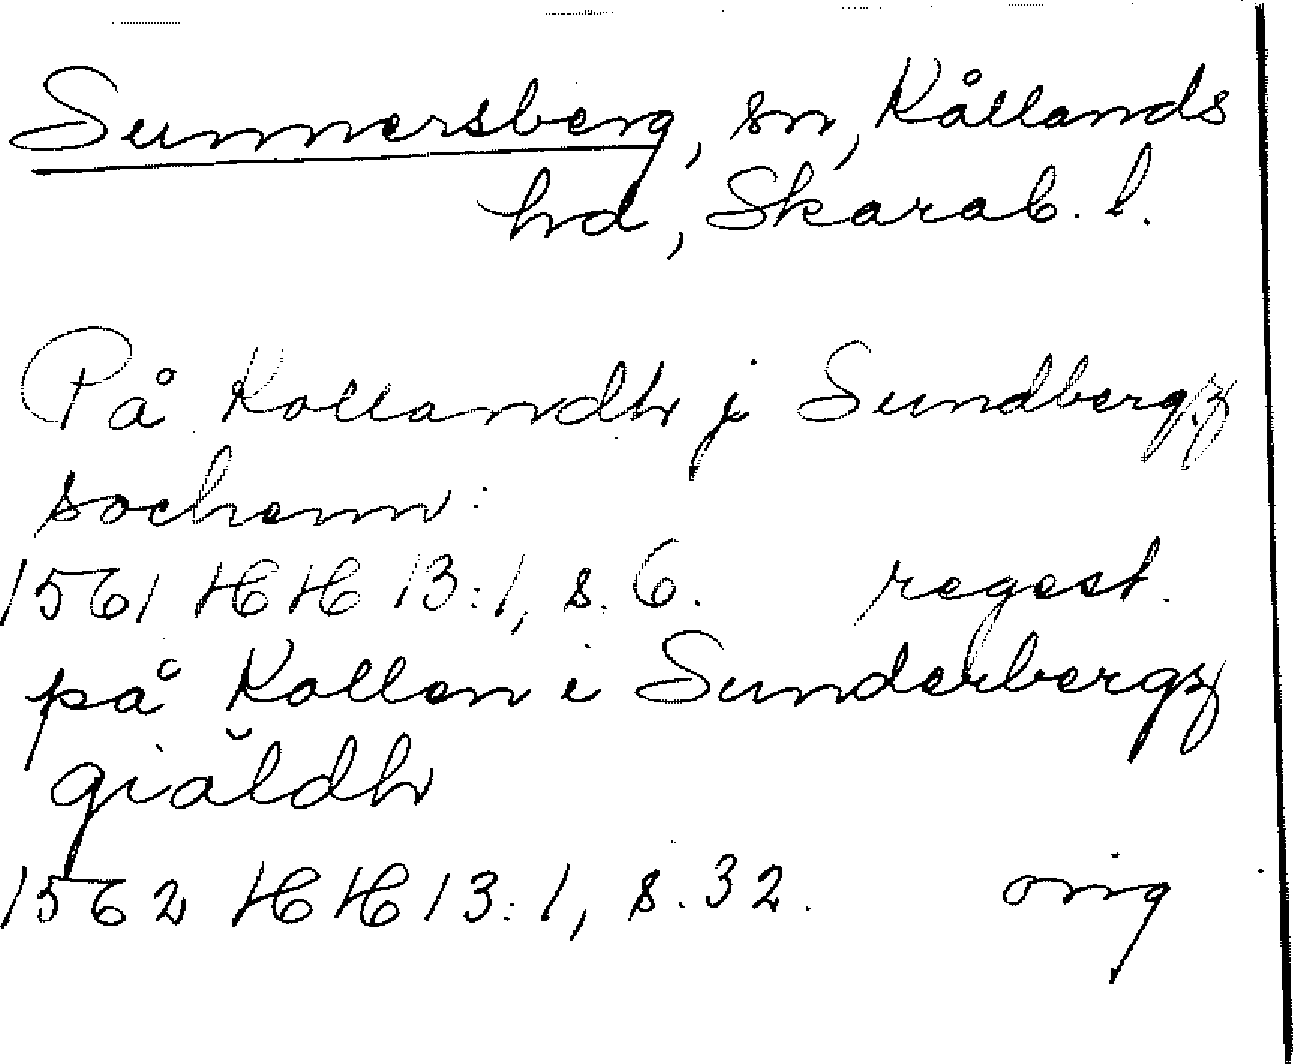 Sunnersberg, sn, Kållands
hd, Skarab. l.
På Kollandh j Sundbergz
sochenn:
1561 HH 13:1, s. 6. regest.
på Kollen i Sunderbergz
giäldh
1562 HH 13:1, s. 32. orig